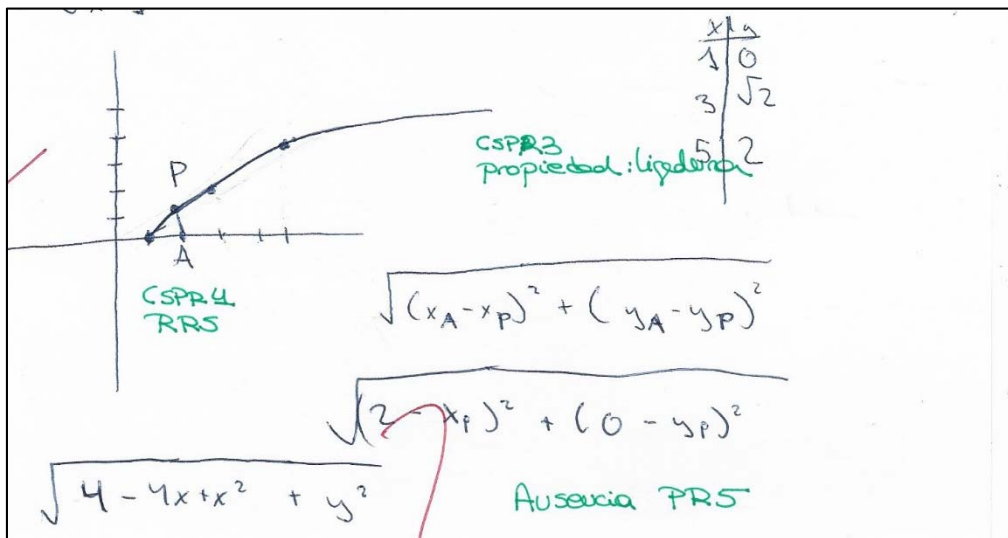 x y
1 0
3 √2
5 2
P
CSPR3
propiedad: ligadura
A
CSPR4
RR5
√(x_A - x_P)² + (y_A - y_P)²
√(2 - x_P)² + (0 - y_P)²
√4 - 4x + x² + y²
Ausencia PR5